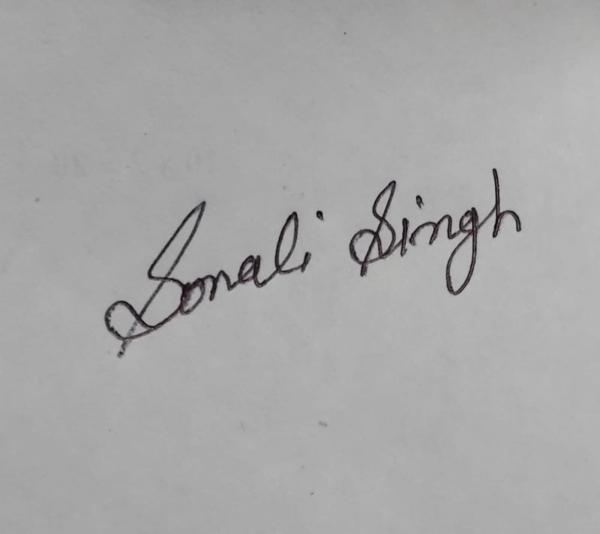 Sonali Singh